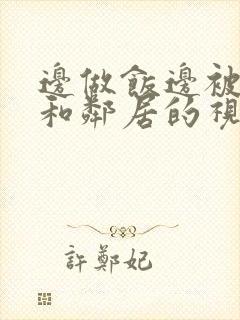 邊做飯邊被
和鄰居的視
許鄭妃